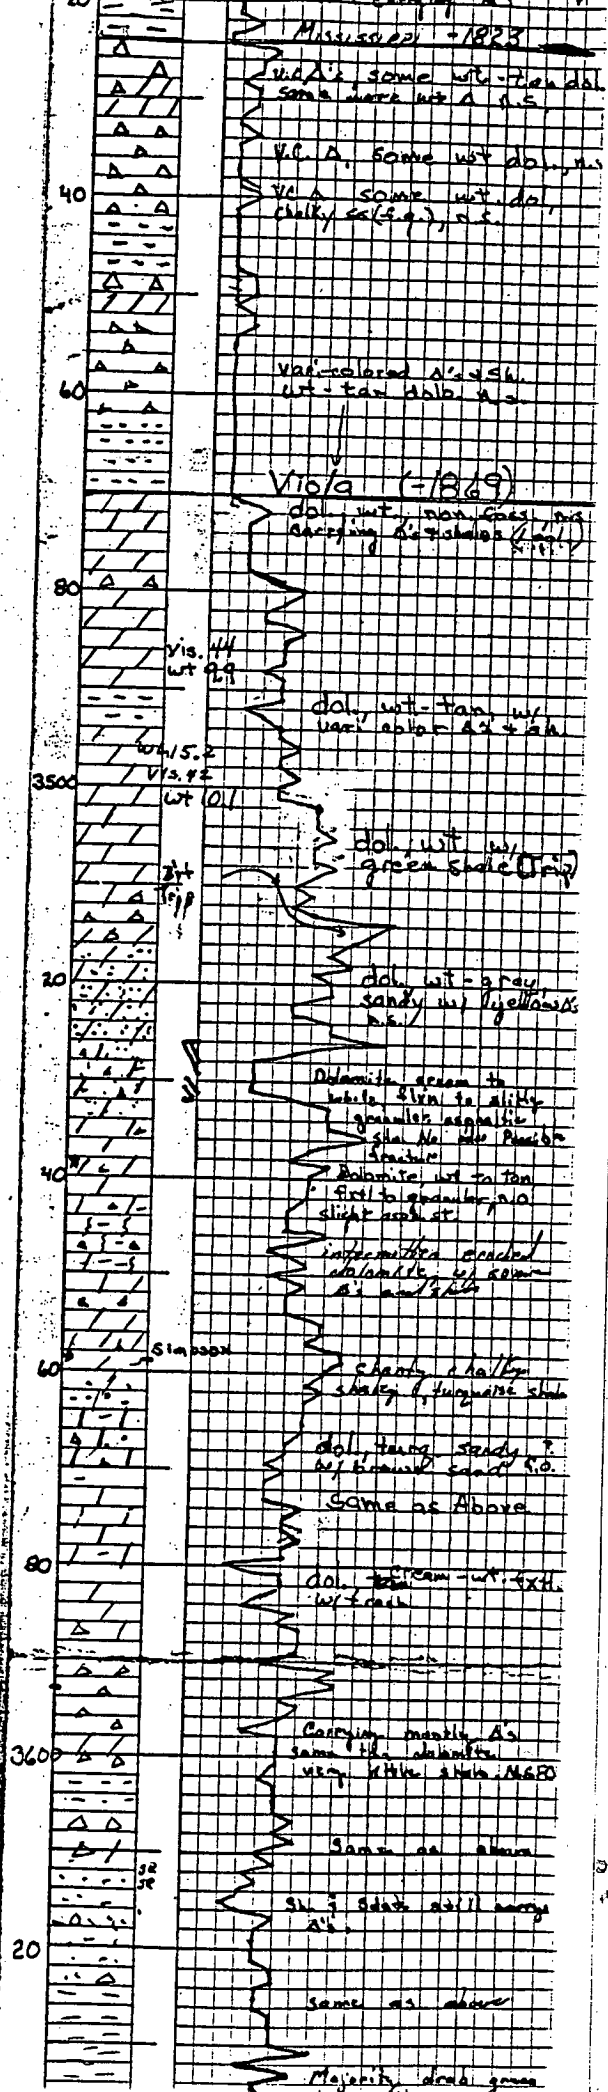 20
Mississippi -1823
V.C. Δ's, some wt-tan dol.
some more wt Δ n.s.
V.C. Δ, some wt dol., n.s.
40
V.C. Δ some wt. dol,
chalky ss(f.g.), n.s.
vari-colored Δ's + Sh.
60
wt-tan dolo. n.s.
Viola (-1869)
dol. wt. non foss, n.s.
carrying Δ's + shales
80
Vis. 44
wt 9.9
dol., wt-tan, w/
vari color Δ's + sh.
wh 15.2
Vis. 42
3500
wt 10.1
dol., wt. w/
green shale (Trip)
Bit
Trip
20
dol, wt-gray,
sandy w/ yellow Δ's
n.s.
Dolomite cream to
white fixn to slitly
granular asphaltic
stn. No Possible
fracture
40
Dolomite, wt to tan
fxtl to granular, n.o.
slight asph st.
dolomite, w/ some
Δ's and shale
Simpson
60
cherty chalky
shaley, turquoise shale
dol, turq. sandy ?
w/ brown sand
Same as Above
80
dol. cream-wt. fxtl.
w/ trash
Carrying mostly Δ's
3600
some dolomite
very little shale. NSFO
Same as above
Sh. & still carry
Δ's.
20
same as above
Majority drab green